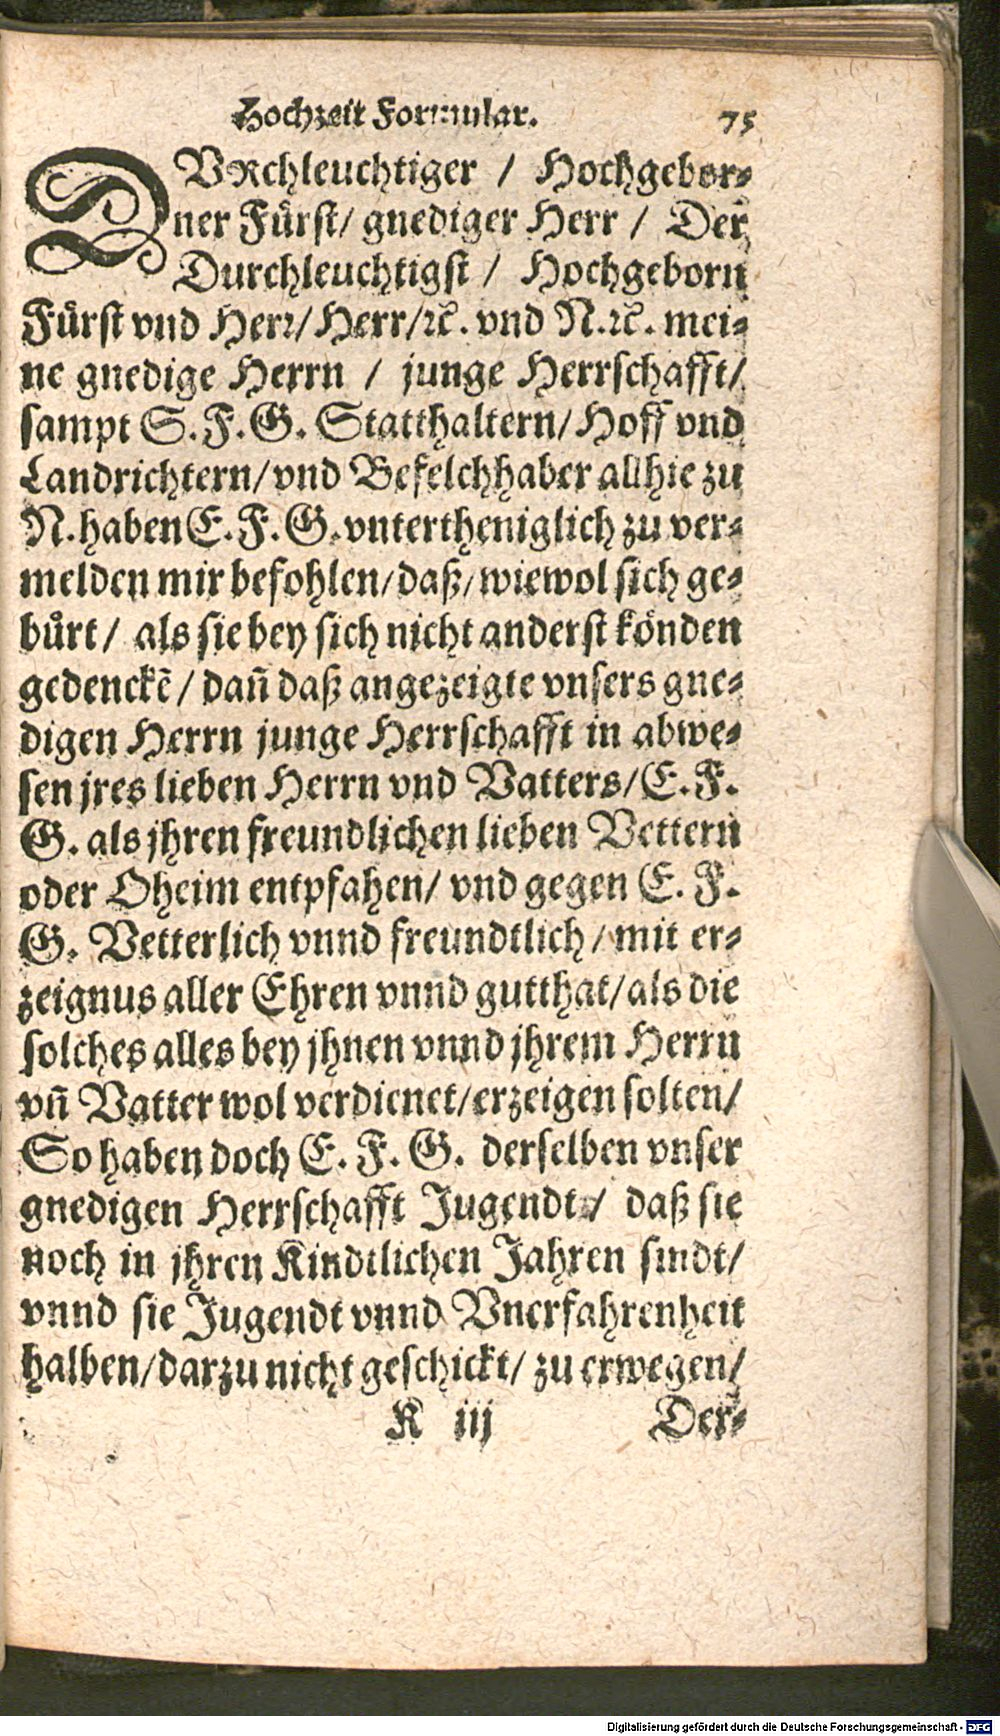 Hochzeit Formular. 75
DVRchleuchtiger / Hochgebor⸗
ner Fuͤrst/ gnediger Herr / Der
Durchleuchtigst / Hochgeborn
Fuͤrst vnd Herr/ Herr/ꝛc̃. vnd N.ꝛc̃. mei⸗
ne gnedige Herrn / junge Herrschafft/
sampt S. F. G. Statthaltern/ Hoff vnd
Landrichtern/ vnd Befelchhaber allhie zu
N. haben E. F. G. vntertheniglich zu ver⸗
melden mir befohlen/ daß/ wiewol sich ge⸗
buͤrt/ als sie bey sich nicht anderst koͤnden
gedenckẽ / dañ daß angezeigte vnsers gne⸗
digen Herrn junge Herrschafft in abwe⸗
sen jres lieben Herrn vnd Vatters/ E. F.
G. als jhren freundlichen lieben Vettern
oder Oheim entpfahen/ vnd gegen E. F.
G. Vetterlich vnnd freundtlich / mit er⸗
zeignus aller Ehren vnnd gutthat/ als die
solches alles bey jhnen vnnd jhrem Herrn
vñ Vatter wol verdienet/ erzeigen solten/
So haben doch E. F. G. derselben vnser
gnedigen Herrschafft Jugendt / daß sie
noch in jhren Kindtlichen Jahren sindt/
vnnd sie Jugendt vnnd Vnerfahrenheit
halben/ darzu nicht geschickt/ zu erwegen/
K iij Der⸗
Digitalisierung gefördert durch die Deutsche Forschungsgemeinschaft - DFG